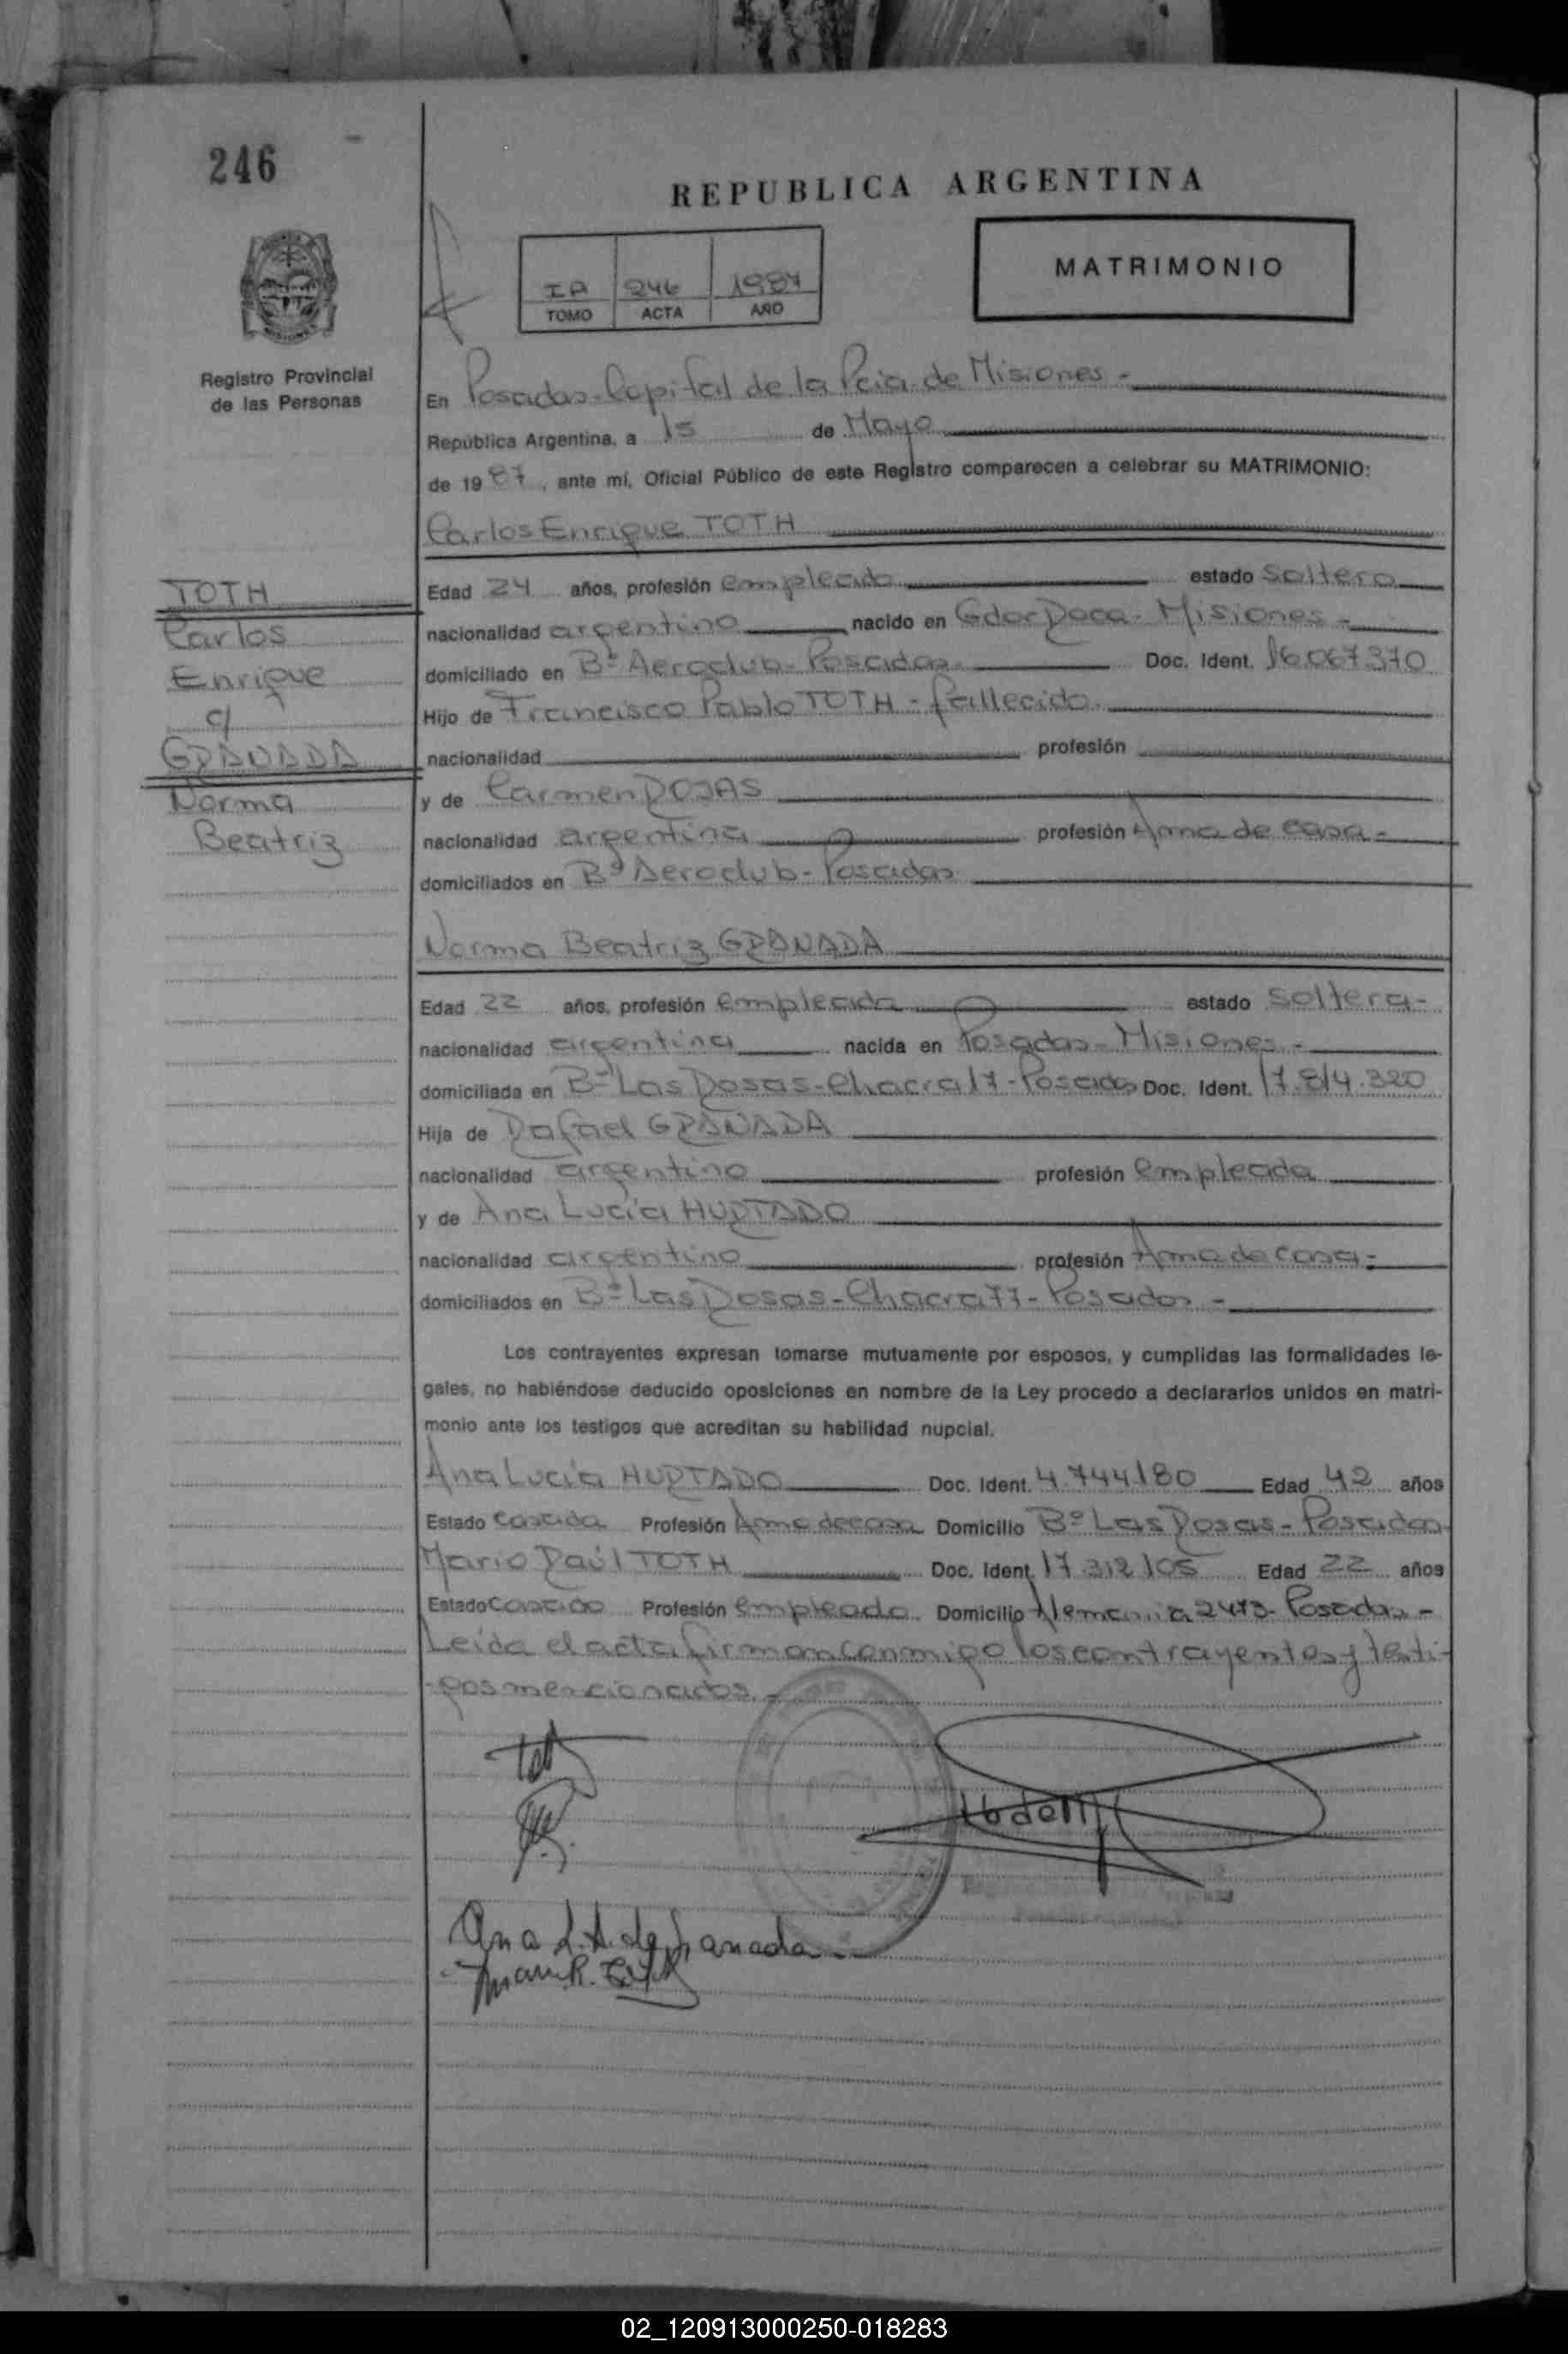 246
REPUBLICA ARGENTINA
MATRIMONIO
IA 246 1987
TOMO ACTA AÑO
Registro Provincial
de las Personas
En Posadas-Capital de la Pcia. de Misiones -
República Argentina, a 15 de Mayo
de 1987, ante mí, Oficial Público de este Registro comparecen a celebrar su MATRIMONIO:
Carlos Enrique TOTH
TOTH
Carlos
Enrique
c/
GRANADA
Norma
Beatriz
Edad 24 años, profesión empleado estado soltero
nacionalidad argentino nacido en Gdor Roca - Misiones -
domiciliado en Bº Aeroclub - Posadas Doc. Ident. 16.067.370
Hijo de Francisco Pablo TOTH - fallecido.
nacionalidad profesión
y de Carmen ROJAS
nacionalidad argentina profesión Ama de casa -
domiciliados en Bº Aeroclub - Posadas
Norma Beatriz GRANADA
Edad 22 años, profesión empleada estado soltera -
nacionalidad argentina nacida en Posadas - Misiones -
domiciliada en Bº Las Rosas - Chacra 17 - Posadas Doc. Ident. 17.814.320
Hija de Rafael GRANADA
nacionalidad argentino profesión empleada
y de Ana Lucía HURTADO
nacionalidad argentino profesión Ama de casa -
domiciliados en Bº Las Rosas - Chacra 77 - Posadas -
Los contrayentes expresan tomarse mutuamente por esposos, y cumplidas las formalidades le-
gales, no habiéndose deducido oposiciones en nombre de la Ley procedo a declararlos unidos en matri-
monio ante los testigos que acreditan su habilidad nupcial.
Ana Lucía HURTADO Doc. Ident. 4.744.180 Edad 42 años
Estado casada Profesión Ama de casa Domicilio Bº Las Rosas - Posadas
Mario Raúl TOTH Doc. Ident. 17.312.105 Edad 22 años
Estado casado Profesión empleado Domicilio Alemania 2473 - Posadas -
Leída el acta firman conmigo los contrayentes y testi-
-gos mencionados. -
02_120913000250-018283